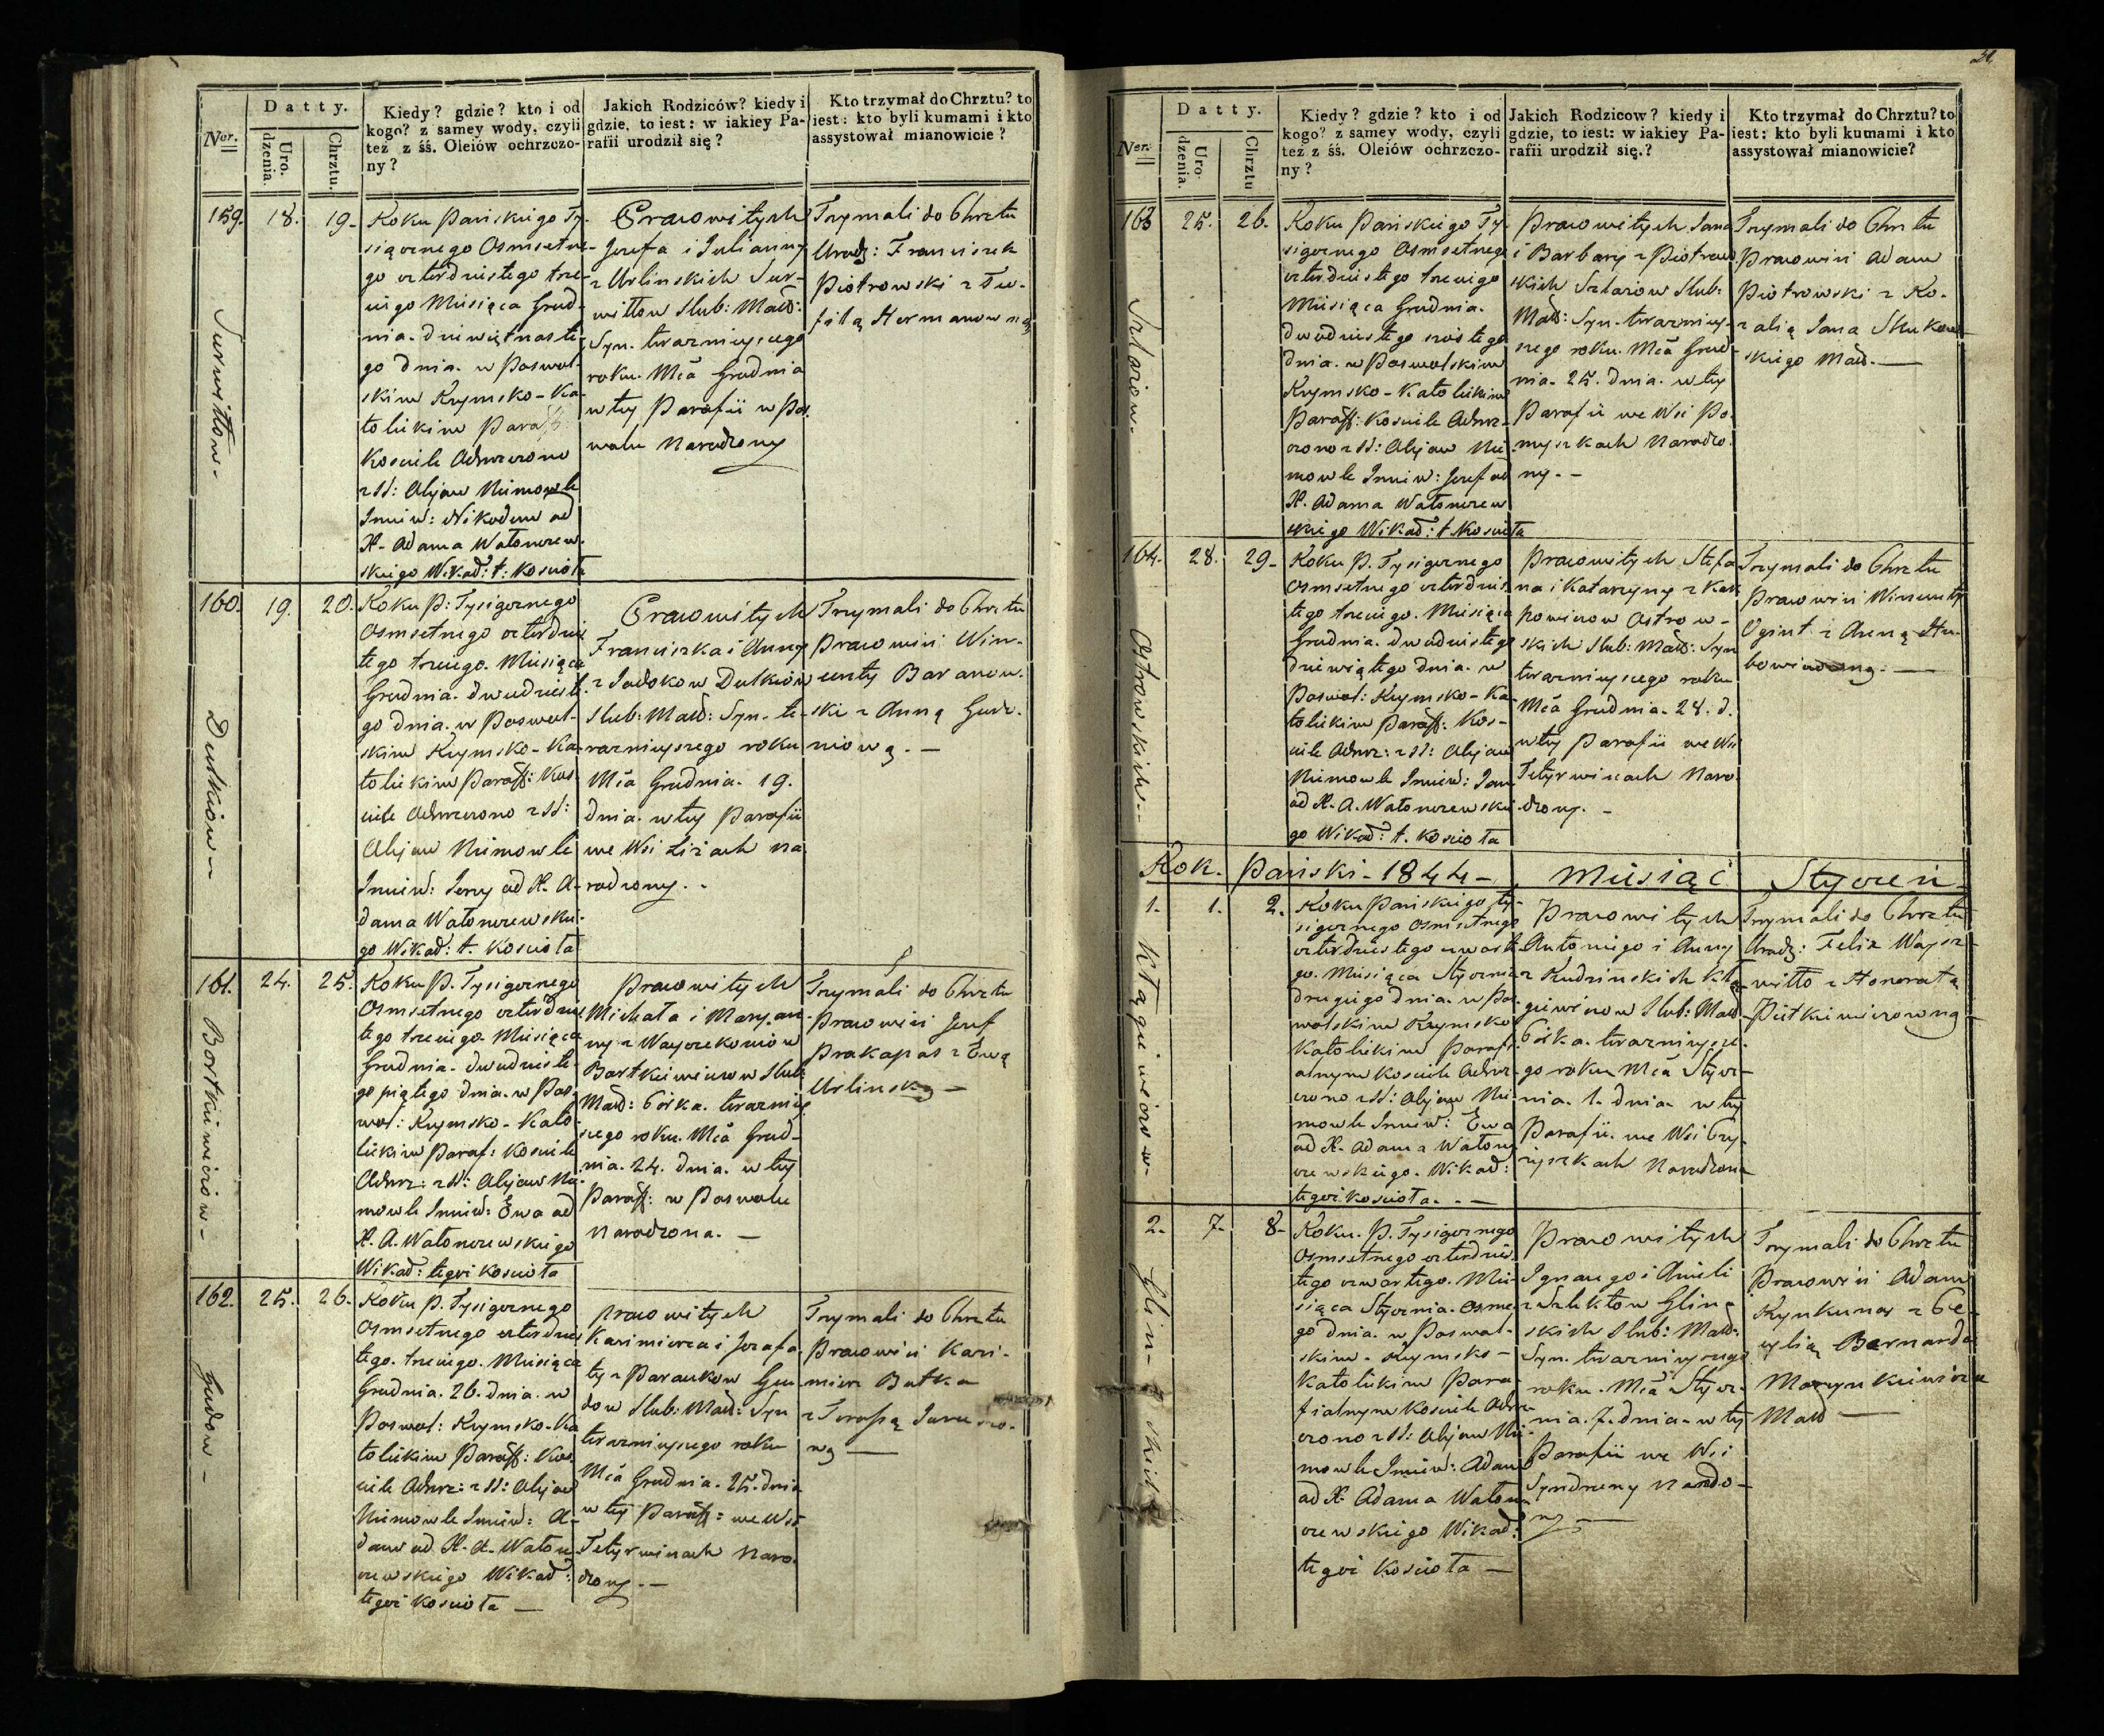 Datty.
Ner.
Uro.
dzenia.
Chrztu.
Kiedy? gdzie? kto i od
kogo? z samey wody, czyli
też z śś. Oleiów ochrzczo-
ny?
Jakich Rodziców? kiedy i
gdzie, to iest: w iakiey Pa-
rafii urodził się?
Kto trzymał do Chrztu? to
iest: kto byli kumami i kto
assystował mianowicie?
159.
Surwiłłow-
18.
19-
Roku Pańskiego Ty-
siącznego Osmsetne-
go czterdziestego trze-
ciego Miesiąca Grud-
nia. dziewiętnaste-
go dnia. w Poswol-
skim Rzymsko-Ka-
tolickim Paraff:
Kosciele Ochrzczono
z SS: Olejow Niemowle
Imiem: Nikodem od
X. Adama Wałonczew-
skiego Wikad: t: Koscioła
Pracowitych
Jozefa i Julianny
z Urlinskich Sur-
wiłłow Slub: Małż:
Syn. teraznieyszego
roku. Mca Grudnia
w tey Parafii w Pos-
wolu Narodzony
Trzymali do Chrztu
Urodz: Franciszek
Piotrowski z Teo-
filą Hermanowną
160.
Dulkiow-
19.
20.
Roku P: Tysiącznego
Osmsetnego czterdzies
tego trzeciego. Miesiąca
Grudnia. dwudzieste-
go dnia. w Poswol-
skim Rzymsko-Ka-
tolickim Paraff: Kos-
ciele Ochrzczono z SS:
Olejow Niemowle
Imiem: Jerzy od X. A-
dama Wałonczewskie-
go Wikad: t. Koscioła
Pracowitych
Franciszka i Anny
z Jodokow Dulkiow
Slub: Małż: Syn. te-
raznieyszego roku
Mca Grudnia. 19.
dnia. w tey Parafii
we Wsi Liżach na
rodzony. -
Trzymali do Chrztu
Pracowici Win-
centy Baranow-
ski z Anną Gudz-
niową. -
161.
Bortkiewiczow-
24.
25.
Roku P. Tysiącznego
Osmsetnego czterdzies
tego trzeciego. Miesiąca
Grudnia. dwudzieste-
go piątego dnia. w Pos-
wol: Rzymsko-Kato-
lickim Paraf: Kosciele
Ochrz: z SS: Olejow Nie-
mowle Imiem: Ewa od
X. A. Wałonczewskiego
Wikad: tegoż Koscioła
Pracowitych
Michała i Maryan-
ny z Wayczekoniow
Bortkiewiczow Slub:
Małż: Córka. teraznie
szego roku. Mca Grud-
nia. 24. dnia. w tey
Paraff: w Poswolu
Narodzona. -
Trzymali do Chrztu
Pracowici Jozef
Prakapas z Ewą
Urlinską -
162.
Gudow-
25.
26.
Roku P. Tysiącznego
Osmsetnego czterdzies
tego. trzeciego. Miesiąca
Grudnia. 26. dnia. w
Poswol: Rzymsko-Ka
tolickim Paraff: Kos
ciele Ochrz: z SS: Olejow
Niemowle Imiem: A-
dam od X. A. Wałon-
czewskiego Wikad:
tegoż Koscioła -
Pracowitych
Kazimierza i Jozefa
ty z Paraukow Gu-
dow Slub: Małż: Syn
teraznieyszego roku
Mca Grudnia. 25. dnia
w tey Paraff: we Wsi
Tetyrwinach Naro-
dzony. -
Trzymali do Chrztu
Pracowici Kazi-
mierz Butka
ną -
21.
Datty.
Ner.
Uro-
dzenia.
Chrztu
Kiedy? gdzie? kto i od
kogo? z samey wody, czyli
też z śś. Oleiów ochrzczo-
ny?
Jakich Rodziców? kiedy i
gdzie, to iest: w iakiey Pa-
rafii urodził się.?
Kto trzymał do Chrztu? to
iest: kto byli kumami i kto
assystował mianowicie?
163
Szlazow-
25.
26.
Roku Pańskiego Ty-
siącznego Osmsetnego
czterdziestego trzeciego
Miesiąca Grudnia.
dwudziestego szostego
dnia. w Poswolskim
Rzymsko-Katolickim
Paraff: Kosciele Ochrz-
czono z SS: Olejow Nie-
mowle Imiem: Jozef od
X. Adama Wałonczew
skiego Wikad: t Koscioła
Pracowitych Jana
i Barbary z Piotrow-
skich Szlazow Slub:
Małż: Syn. terazniey-
szego roku. Mca Grud-
nia. 25. dnia. w tey
Parafii we Wsi Po-
myszkach Narodzo-
ny. -
Trzymali do Chrztu
Pracowici Adam
Piotrowski z Ro-
zalią Jana Stukow-
skiego Małż. -
164.
Ostrowskich-
28.
29-
Roku P. Tysiącznego
Osmsetnego czterdzies
tego trzeciego. Miesiąca
Grudnia. dwudziestego
dziewiątego dnia. w
Poswol: Rzymsko-Ka-
tolickim Paraff: Kos-
ciele Ochrz: z SS: Olejow
Niemowle Imiem: Jan
od X. A. Wałonczewskie
go Wikad: t. Koscioła
Pracowitych Stefa
na i Katarzyny z Kas
powiczow Ostrow-
skich Slub: Małż: Syn
teraznieyszego roku
Mca Grudnia. 28. d.
w tey Parafii we Wsi
Tetyrwinach Naro-
dzony. -
Trzymali do Chrztu
Pracowici Wincenty
Ogint z Anną
Rok. Pański. 1844- Miesiąc Styczeń-
1.
Kłągiewiczow-
1.
2.
Roku Pańskiego Ty-
siącznego Osmsetnego
czterdziestego czwarte
go. Miesiąca Stycznia
drugiego dnia. w Pos-
wolskim Rzymsko
Katolickim Parafi-
alnym Kosciele Ochrz-
czono z SS: Olejow Nie-
mowle Imiem: Ewa
od X. Adama Wałon-
czewskiego. Wikad:
tegoż Koscioła. -
Pracowitych
Antoniego i Anny
z Rudzinskich Kłą-
giewiczow Slub: Małż
Córka. teraznieysze-
go roku Mca Stycz-
nia. 1. dnia. w tey
Parafii. we Wsi Gry-
ryszkach Narodzona
Trzymali do Chrztu
Urodz: Felix Woysz-
wiłło z Honoratą
Pietkiewiczowną
2.
Glin-skich
7.
8-
Roku. P. Tysiącznego
Osmsetnego czterdzies
tego czwartego. Mie-
siąca Stycznia. osme-
go dnia. w Poswol-
skim. Rzymsko-
Katolickim Para-
fialnym Kosciele Ochrz-
czono z SS: Olejow Nie-
mowle Imiem: Adam
od X. Adama Wałon-
czewskiego Wikad:
tegoż Koscioła -
Pracowitych
Ignacego i Anieli
z Szlektow Glin-
skich Slub: Małż:
Syn. teraznieyszego
roku. Mca Stycz-
nia. 7. dnia. w tey
Parafii we Wsi
Syndziuny Narodo-
ny -
Trzymali do Chrztu
Pracowici Adam
Rynkunas z Ce-
cylią Bernarda
Martynkiewicza
Małż -